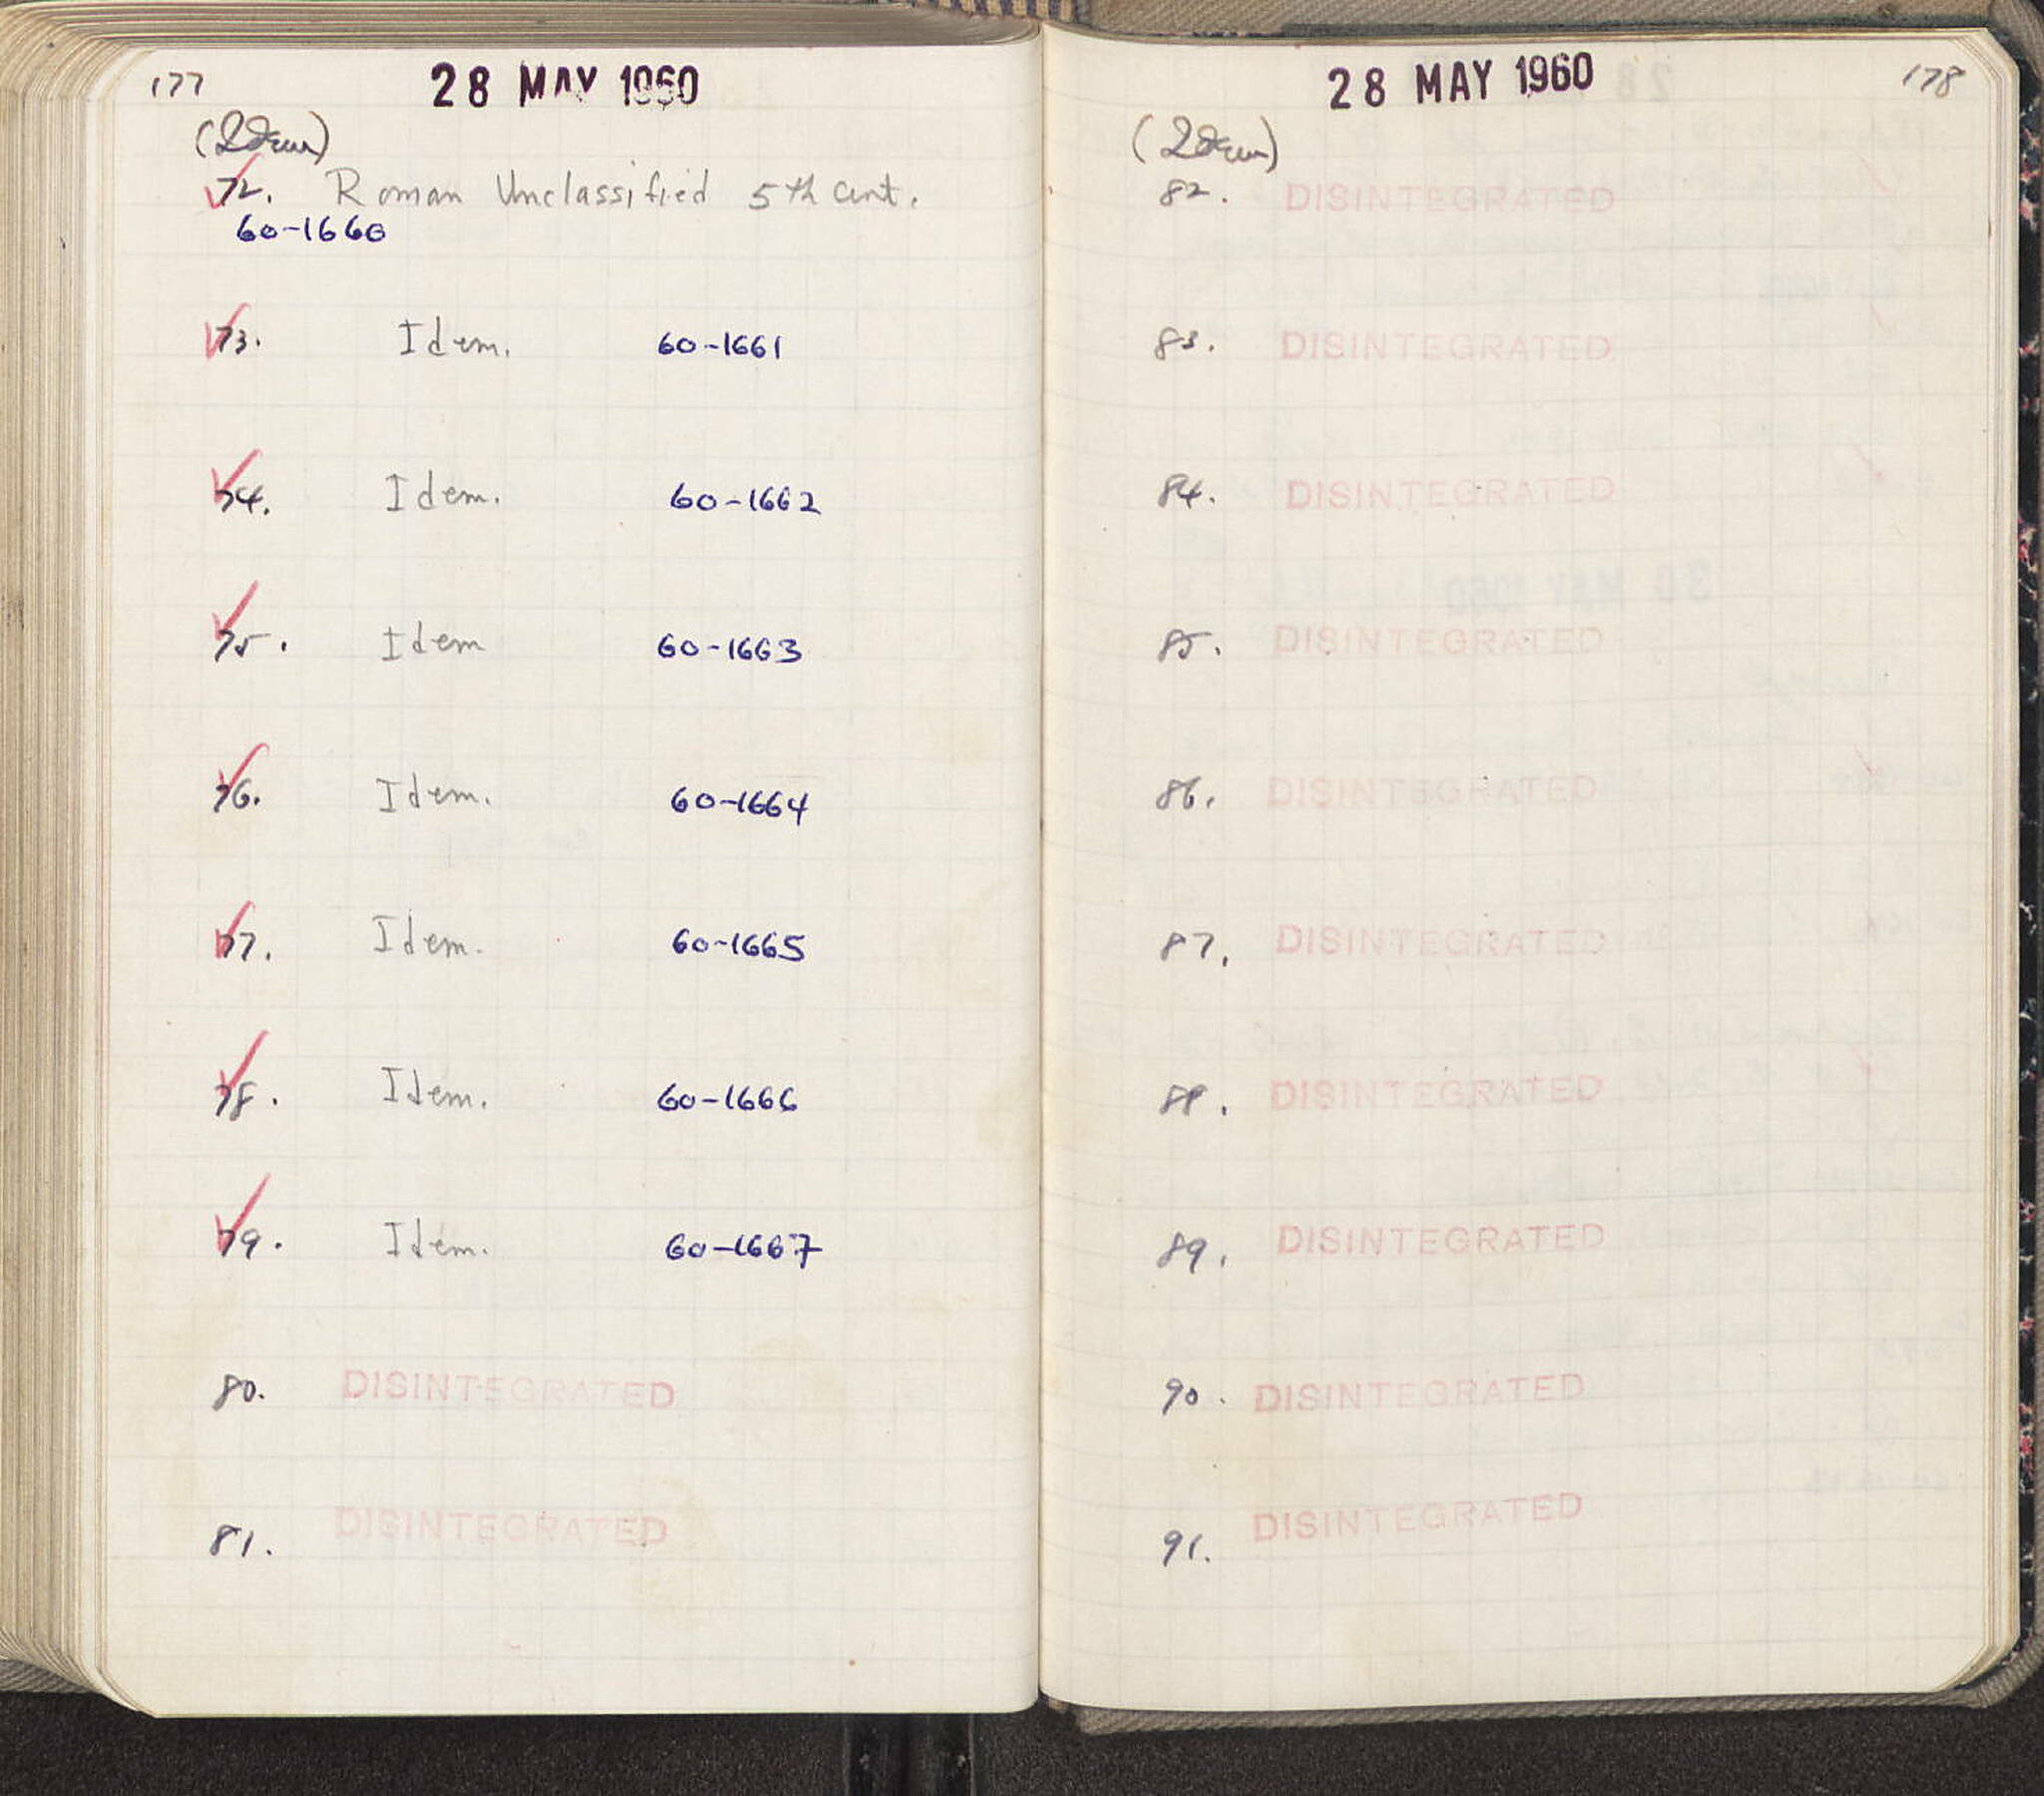 177
28 MAY 1960
(Idem)
72. Roman Unclassified 5th cent.
60-1660
73. Idem. 60-1661
74. Idem. 60-1662
75. Idem 60-1663
76. Idem. 60-1664
77. Idem. 60-1665
78. Idem. 60-1666
79. Idem. 60-1667
80. DISINTEGRATED
81. DISINTEGRATED
28 MAY 1960
178
(Idem)
82. DISINTEGRATED
83. DISINTEGRATED
84. DISINTEGRATED
85. DISINTEGRATED
86. DISINTEGRATED
87. DISINTEGRATED
88. DISINTEGRATED
89. DISINTEGRATED
90. DISINTEGRATED
91. DISINTEGRATED